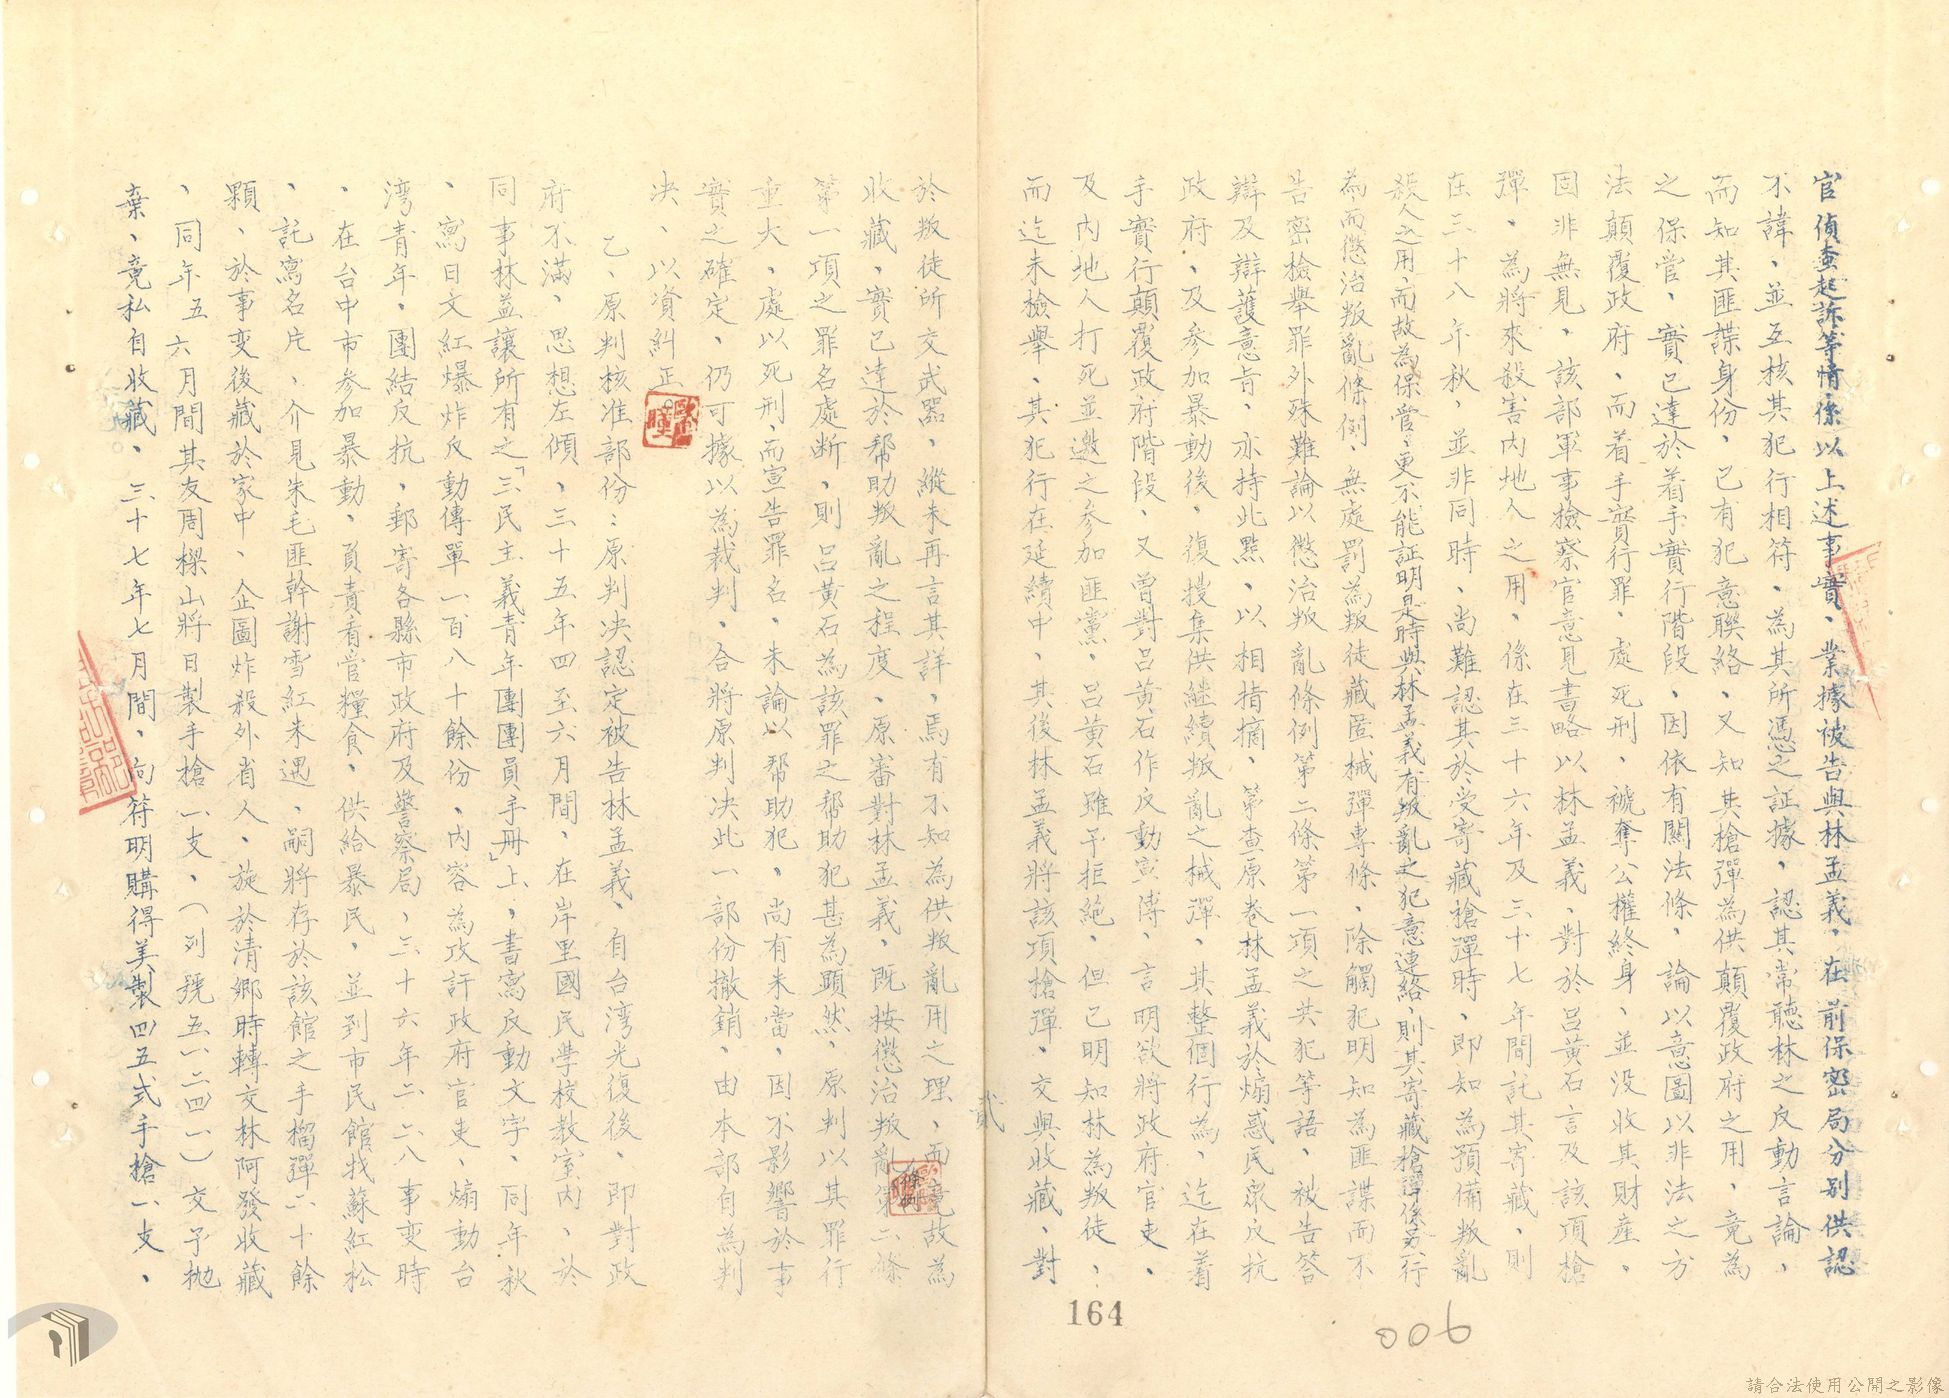 官偵查起訴等情係以上述事實、業據被告與林孟義、在前保密局分別供認
不諱、並互核其犯行相符、為其所憑之証據、認其常聽林之反動言論、
而知其匪諜身份、已有犯意聯絡、又知其槍彈為供顛覆政府之用、竟為
之保管、實已達於着手實行階段、因依有關法條、論以意圖以非法之方
法顛覆政府、而着手實行罪、處死刑、褫奪公權終身、並没收其財産。
固非無見、該部軍事檢察官意見書略以林孟義、對於呂黃石言及該項槍
彈、為將來殺害内地人之用、係在三十六年及三十七年間託其寄藏、則
在三十八年秋、並非同時、尚難認其於受寄藏槍彈時、即知為預備叛亂
殺人之用、而故為保管、更不能証明是時與林孟義有叛亂之犯意連絡、則其寄藏槍彈係另一行
為、而懲治叛亂條例、無處罰為叛徒藏匿械彈專條、除觸犯明知為匪諜而不
告密檢舉罪外殊難論以懲治叛亂條例第二條第一項之共犯等語、被告答
辯及辯護意旨、亦持此點、以相指摘、第查原卷林孟義於煽惑民眾反抗
政府、及参加暴動後、復搜集供継續叛亂之械彈、其整個行為、迄在着
手實行顛覆政府階段、又曾對呂黃石作反動宣傳、言明欲將政府官吏、
及内地人打死並邀之参加匪黨、呂黃石雖予拒絕、但已明知林為叛徒、
而迄未檢舉、其犯行在延續中、其後林孟義將該項槍彈、交與收藏、對
貳
於叛徒所交武器、縱未再言其詳、焉有不知為供叛亂用之理、而竟故為
收藏、實已達於帮助叛亂之程度、原審對林孟義、既按懲治叛亂條例第二條
第一項之罪名處断、則呂黃石為該罪之帮助犯甚為顕然、原判以其罪行
重大、處以死刑、而宣告罪名、未論以幇助犯、尚有未當、因不影響於事
實之確定、仍可據以為裁判、合將原判决此一部份撤銷、由本部自為判
决、以資糾正。
乙、原判核准部份：原判决認定被告林孟義、自台湾光復後、即對政
府不滿、思想左傾、三十五年四至六月間、在岸里國民学校教室内、於
同事林益讓所有之「三民主義青年團團員手冊」上、書寫反動文字、同年秋
、寫日文紅爆炸反動傳單一百八十餘份、内容為攻訐政府官吏、煽動台
湾青年、團結反抗、郵寄各縣市政府及警察局、三十六年二、二八事变時
、在台中市参加暴動、負責看管糧食、供給暴民、並到市民館找蘇紅松
、託寫名片、介見朱毛匪幹謝雪紅未遇、嗣將存於該館之手榴彈二十餘
顆、於事变後藏於家中、企圖炸殺外省人、旋於清郷時轉交林阿發收藏
、同年五六月間其友周樑山將日製手槍一支、（列號五一二四一）交予抛
棄、竟私自收藏、三十七年七月間、向符明購得美製四五式手槍一支、
164
006
請合法使用公開之影像